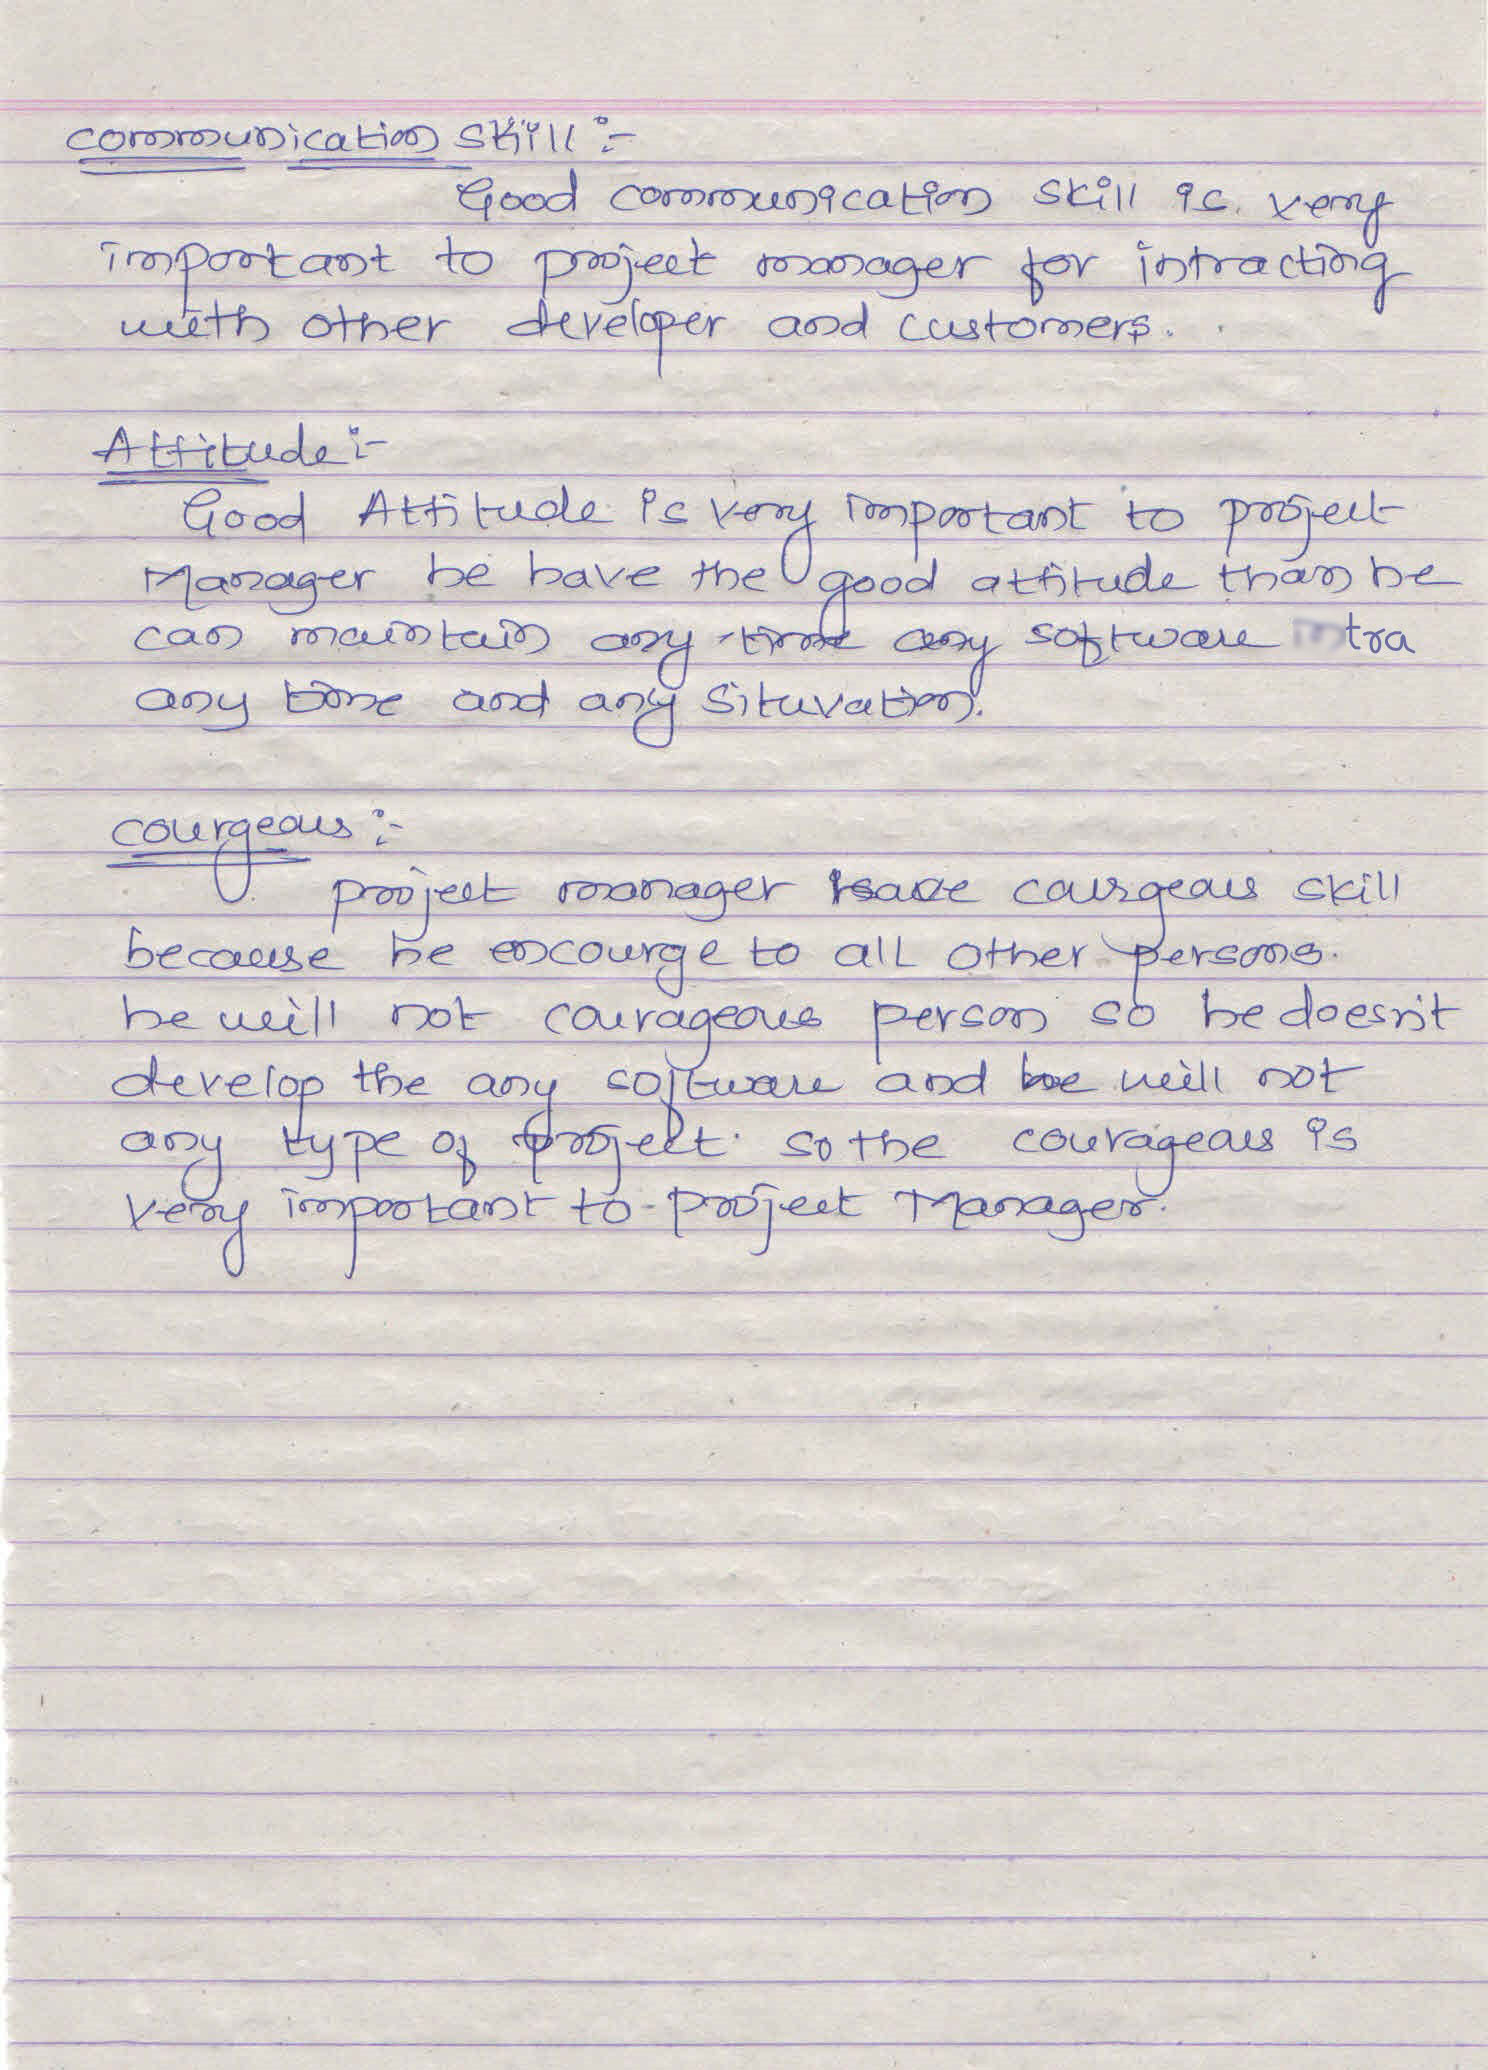 communication skill :-
Good communication skill is very
important to project manager for intracting
with other developer and customers.
Attitude :-
Good Attitude is very important to project
Manager he have the good attitude than he
can maintain any time any software tra
any time and any situvation.
courgeous :-
project manager have courgeous skill
because he encourge to all other persons.
he will not courageous person so he doesn't
develop the any software and he will not
any type of project. so the courageous is
very important to project Manager.